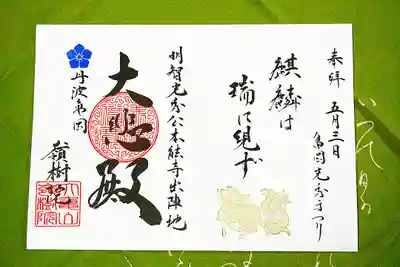 奉拝 五月三日
亀岡光秀まつり
麒麟は
瑞に現ず
明智光秀公本能寺出陣地
大悲殿
丹波亀岡
嶺樹院